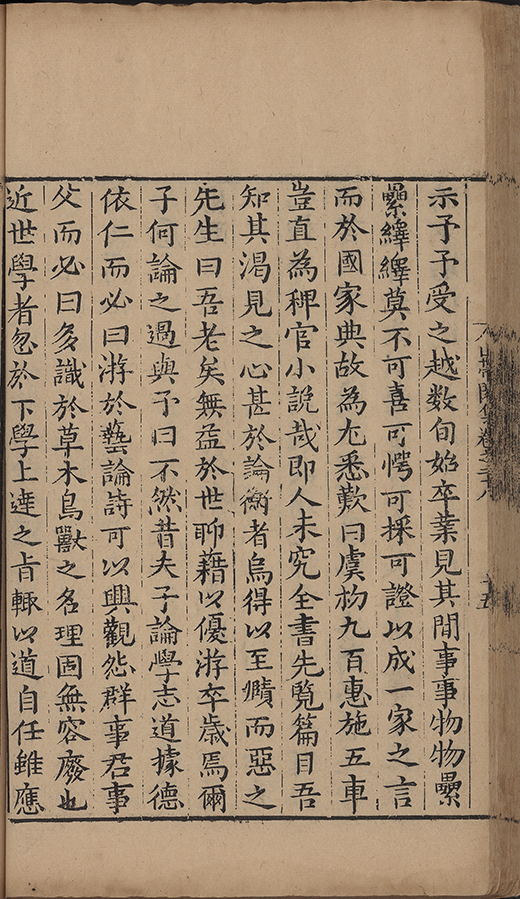 示予予受之越数旬始卒業見其間事事物物纍
纍繹繹莫不可喜可愕可採可證以成一家之言
而於國家典故為尤悉歎曰虞初九百惠施五車
豈直為稗官小說哉即人未究全書先覧篇目吾
知其渴見之心甚於論衡者烏得以至賾而惡之
先生曰吾老矣無益於世聊藉以優游卒歲焉爾
子何論之過與予曰不然昔夫子論學志道據德
依仁而必曰游於藝論詩可以興觀怨群事君事
父而必曰多識於草木鳥獸之名理固無容廢也
近世學者忽於下學上達之旨輙以道自任雖應